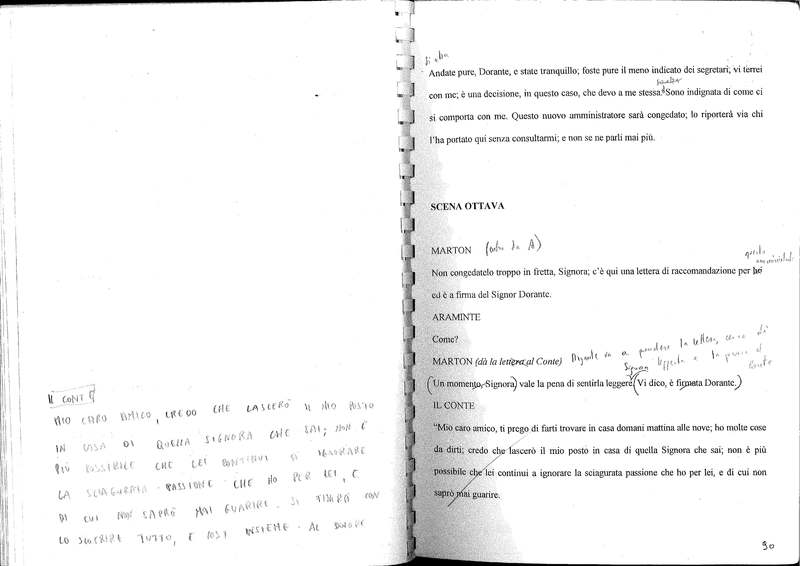 IL CONTE
MIO CARO AMICO, CREDO CHE LASCERÒ IL MIO POSTO
IN CASA DI QUELLA SIGNORA CHE SAI; NON È
PIÙ POSSIBILE CHE LEI CONTINUI A IGNORARE
LA SCIAGURATA PASSIONE CHE HO PER LEI, E
DI CUI NON SAPRÒ MAI GUARIRE. SI FINIRÀ CON
LO SCOPRIRE TUTTO, E COSÌ INSIEME AL DOLORE
Andate pure, Dorante, e state tranquillo; foste pure il meno indicato dei segretari; vi terrei
con me; è una decisione, in questo caso, che devo a me stessa. Sono indignata di come ci
si comporta con me. Questo nuovo amministratore sarà congedato; lo riporterà via chi
l'ha portato qui senza consultarmi; e non se ne parli mai più.
SCENA OTTAVA
MARTON (entra da A)
questo
Non congedatelo troppo in fretta, Signora; c'è qui una lettera di raccomandazione per
ed è a firma del Signor Dorante.
ARAMINTE
Come?
MARTON (dà la lettera al Conte)
Signora
(Un momento, Signora) vale la pena di sentirla leggere (Vi dico, è firmata Dorante.)
IL CONTE
“Mio caro amico, ti prego di farti trovare in casa domani mattina alle nove; ho molte cose
da dirti; credo che lascerò il mio posto in casa di quella Signora che sai; non è più
possibile che lei continui a ignorare la sciagurata passione che ho per lei, e di cui non
saprò mai guarire.
90